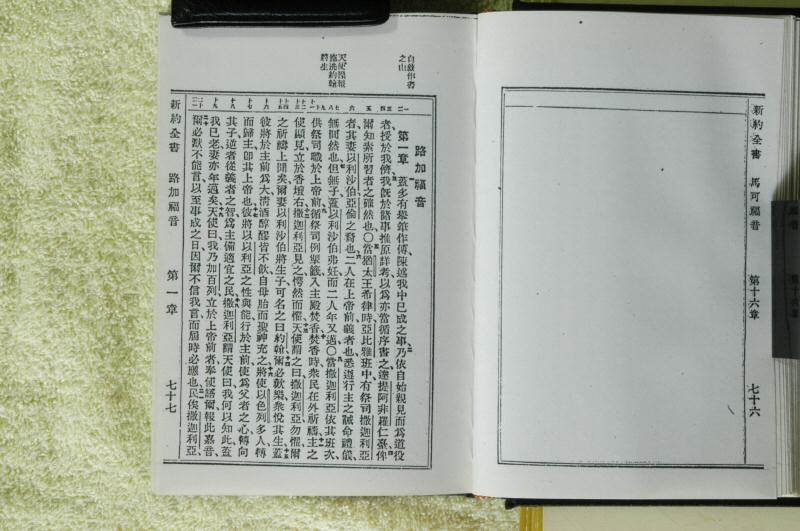 新約全書 馬可福音 第十六章 七十六
自敘作書之由
天使預報施洗約翰將生
路加福音
第一章 蓋多有舉筆作傳陳述我中已成之事乃依自始親見而爲道役
者授於我儕我旣於諸事推原詳考以爲亦當循序書之達提阿非羅仁臺俾
爾知素所習者之確然也〇當猶太王希律時亞比雅班中有祭司撒迦利亞
者其妻以利沙伯亞倫之裔也二人在上帝前義者也悉遵行主之誡命禮儀
無間然也但無子蓋以利沙伯弗妊而二人年又邁〇當撒迦利亞依其班次
供祭司職於上帝前循祭司例掣籤入主殿焚香焚香時衆民在外祈禱主之
使顯見立於香壇右撒迦利亞見之愕然而懼天使謂之曰撒迦利亞勿懼爾
之祈禱上聞矣爾妻以利沙伯將生子可名之曰約翰爾必歡樂衆悅其生蓋
彼將於主前爲大淸酒醇醪皆不飮自母胎而聖神充之將使以色列多人轉
而歸主卽其上帝也彼將以以利亞之性與能行於主前使爲父者之心轉向
其子逆者從義者之智爲主備適宜之民撒迦利亞謂天使曰我何以知此蓋
我已老妻亦年邁矣天使曰我乃加百列立於上帝前者奉使語爾報此嘉音
爾必默不能言以至事成之日因爾不信我言而屆時必應也民俟撒迦利亞
新約全書 路加福音 第一章 七十七